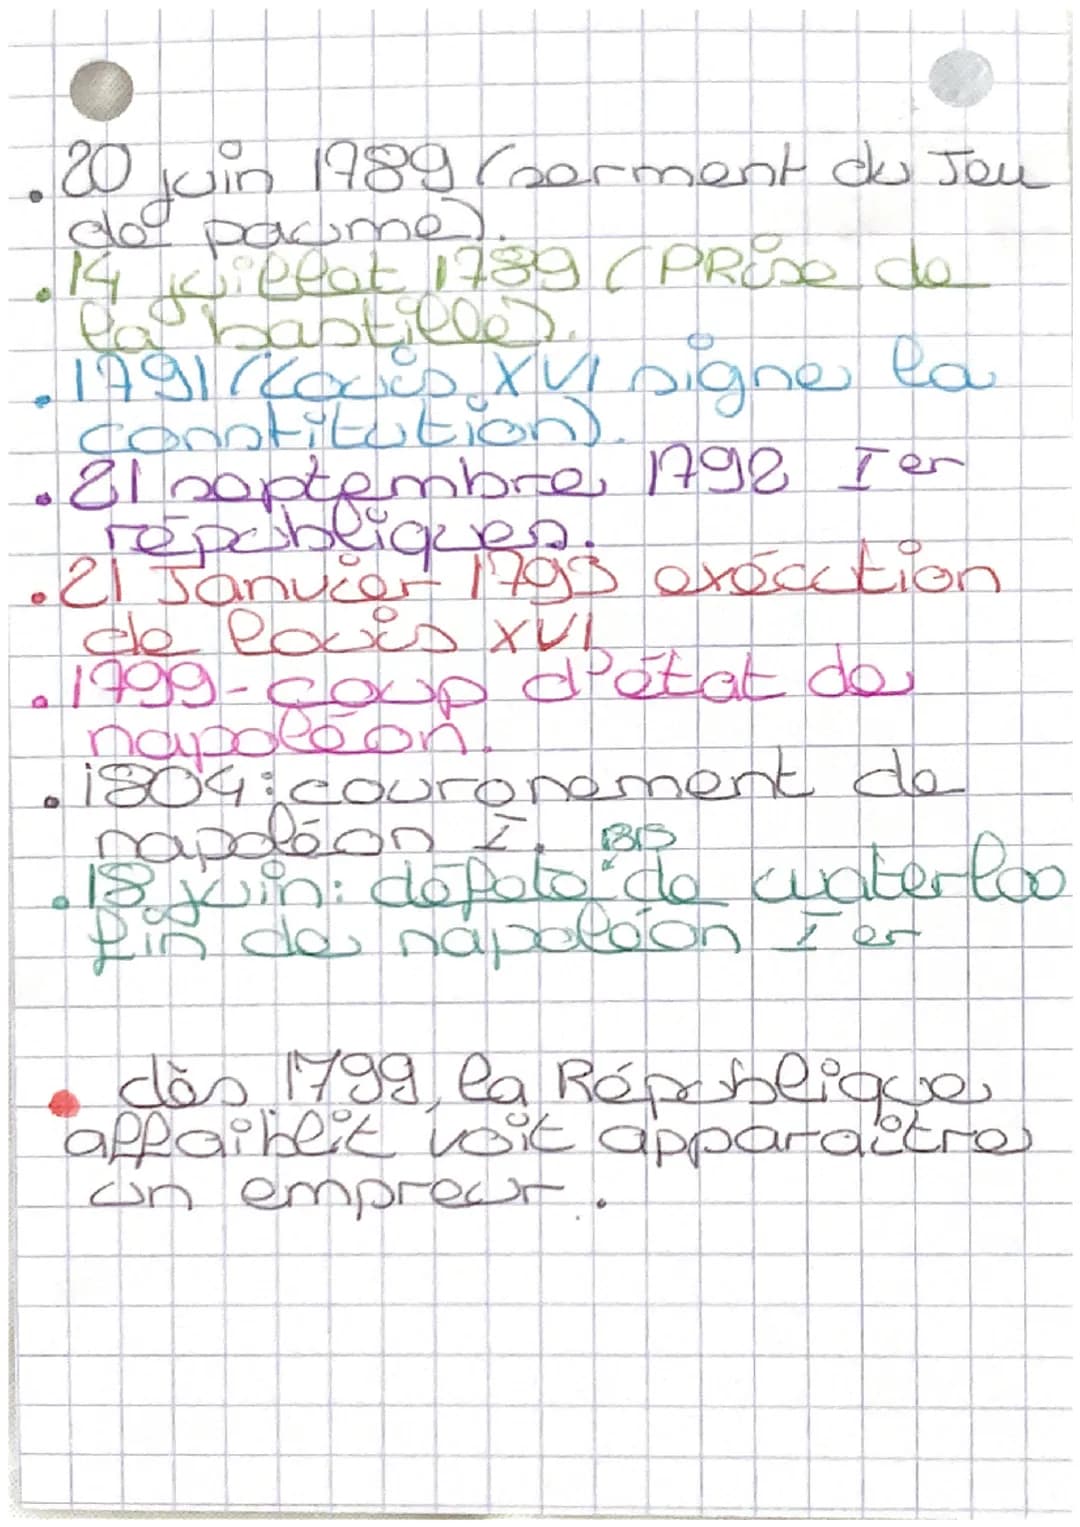 . 20 juin 1789 (serment du Jeu
de paume).
. 14 juillet 1789 (PRise de
la bastille).
. 1791 (Louis XVI signe la
constitution).
. 21 septembre 1792 Ier
républiques.
. 21 Janvier 1793 exécution
de louis XVI
. 1799-coup d'état de
napoléon.
. 1804: couronement de
napoléon I.
1815
. 18 juin: défate de waterloo
fin de napoléon I er
• dès 1799, la République
affaiblit voit apparaître
un empreur.